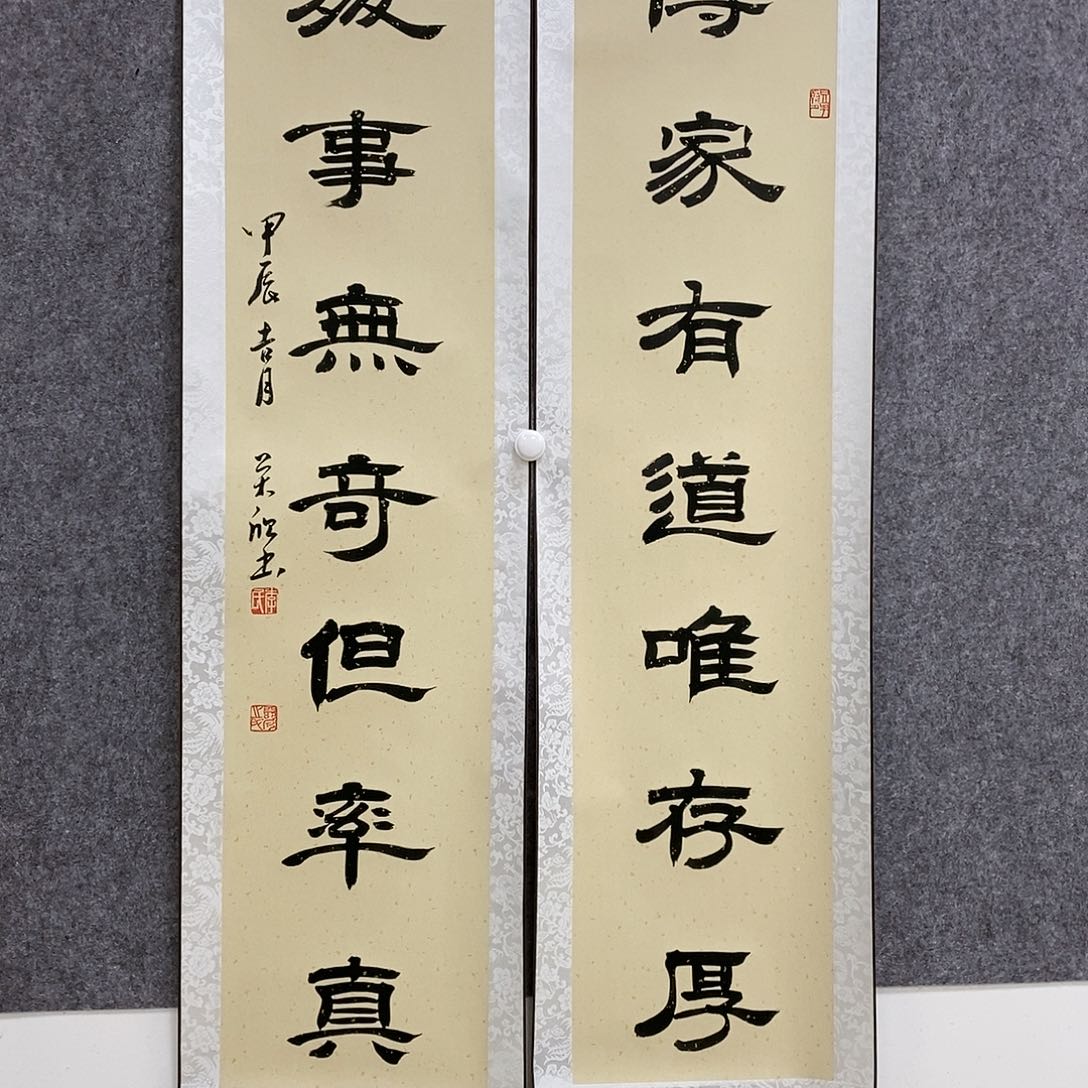 家有道唯存厚
事無奇但率真
甲辰 吉月